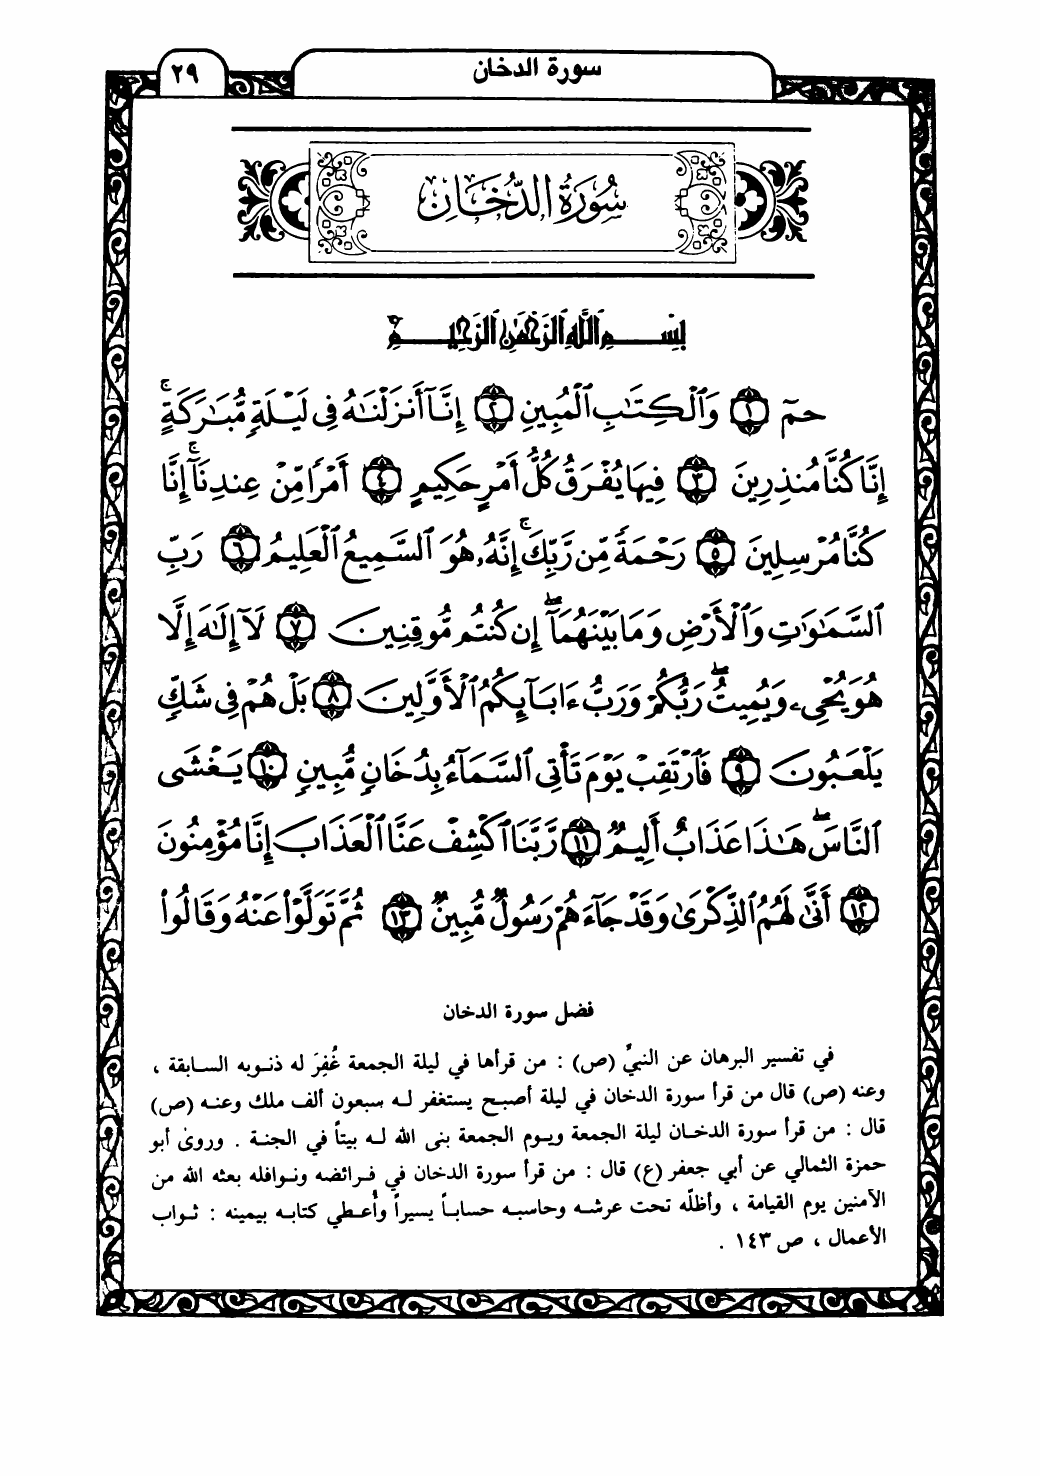 سورة الدخان
٢٩
سُورَةُ الدُّخَانِ
بِسْمِ ٱللَّهِ ٱلرَّحْمَٰنِ ٱلرَّحِيمِ
حمٓ ١ وَٱلْكِتَٰبِ ٱلْمُبِينِ ٢ إِنَّآ أَنزَلْنَٰهُ فِى لَيْلَةٍ مُّبَٰرَكَةٍۚ
إِنَّا كُنَّا مُنذِرِينَ ٣ فِيهَا يُفْرَقُ كُلُّ أَمْرٍ حَكِيمٍ ٤ أَمْرًا مِّنْ عِندِنَآۚ إِنَّا
كُنَّا مُرْسِلِينَ ٥ رَحْمَةً مِّن رَّبِّكَۚ إِنَّهُۥ هُوَ ٱلسَّمِيعُ ٱلْعَلِيمُ ٦ رَبِّ
ٱلسَّمَٰوَٰتِ وَٱلْأَرْضِ وَمَا بَيْنَهُمَآۖ إِن كُنتُم مُّوقِنِينَ ٧ لَآ إِلَٰهَ إِلَّا
هُوَ يُحْىِۦ وَيُمِيتُۖ رَبُّكُمْ وَرَبُّ ءَابَآئِكُمُ ٱلْأَوَّلِينَ ٨ بَلْ هُمْ فِى شَكٍّ
يَلْعَبُونَ ٩ فَٱرْتَقِبْ يَوْمَ تَأْتِى ٱلسَّمَآءُ بِدُخَانٍ مُّبِينٍ ١٠ يَغْشَى
ٱلنَّاسَۖ هَٰذَا عَذَابٌ أَلِيمٌ ١١ رَّبَّنَا ٱكْشِفْ عَنَّا ٱلْعَذَابَ إِنَّا مُؤْمِنُونَ
١٢ أَنَّىٰ لَهُمُ ٱلذِّكْرَىٰ وَقَدْ جَآءَهُمْ رَسُولٌ مُّبِينٌ ١٣ ثُمَّ تَوَلَّوْا۟ عَنْهُ وَقَالُوا۟
فضل سورة الدخان
في تفسير البرهان عن النبيّ (ص) : من قرأها في ليلة الجمعة غُفِرَ له ذنوبه السابقة ،
وعنه (ص) قال من قرأ سورة الدخان في ليلة أصبح يستغفر له سبعون ألف ملك وعنه (ص)
قال : من قرأ سورة الدخان ليلة الجمعة ويوم الجمعة بنى الله له بيتاً في الجنة . وروىٰ أبو
حمزة الثمالي عن أبي جعفر (ع) قال : من قرأ سورة الدخان في فرائضه ونوافله بعثه الله من
الآمنين يوم القيامة ، وأظلّه تحت عرشه وحاسبه حساباً يسيراً وأُعطي كتابه بيمينه : ثواب
الأعمال ، ص ١٤٣ .